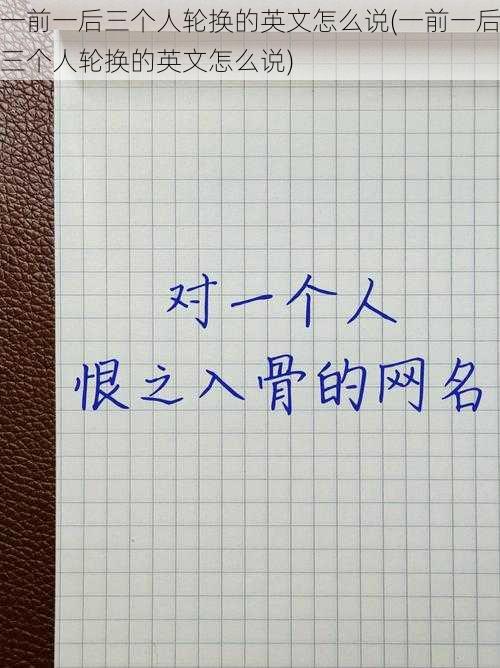 一前一后三个人轮换的英文怎么说(一前一后
三个人轮换的英文怎么说)
对一个人
恨之入骨的网名